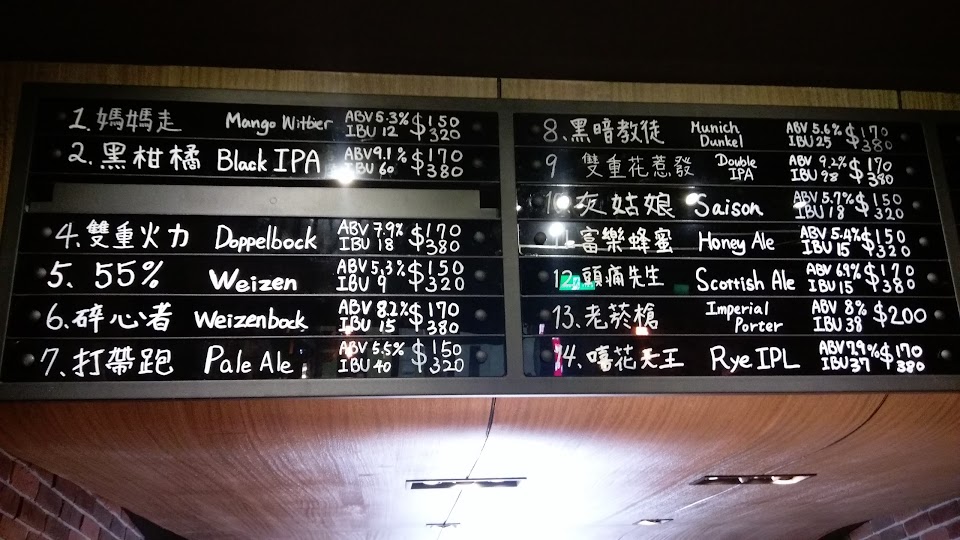 1. 媽媽走 Mango Witbier ABV 5.3% $150
IBU 12 $320
2. 黑柑橘 Black IPA ABV 9.1% $170
IBU 60 $380
4. 雙重火力 Doppelbock ABV 7.9% $170
IBU 18 $380
5. 55% Weizen ABV 5.3% $150
IBU 9 $320
6. 碎心者 Weizenbock ABV 8.2% $170
IBU 15 $380
7. 打帶跑 Pale Ale ABV 5.5% $150
IBU 40 $320
8. 黑暗教徒 Munich Dunkel ABV 5.6% $170
IBU 25 $380
9 雙重花惹發 Double IPA ABV 9.2% $170
IBU 98 $380
10. 灰姑娘 Saison ABV 5.7% $150
IBU 18 $320
11. 富樂蜂蜜 Honey Ale ABV 5.4% $150
IBU 15 $320
12. 頭痛先生 Scottish Ale ABV 6.9% $170
IBU 15 $380
13. 老菸槍 Imperial Porter ABV 8% $200
IBU 38
14. 嘻花天王 Rye IPL ABV 7.9% $170
IBU 37 $380